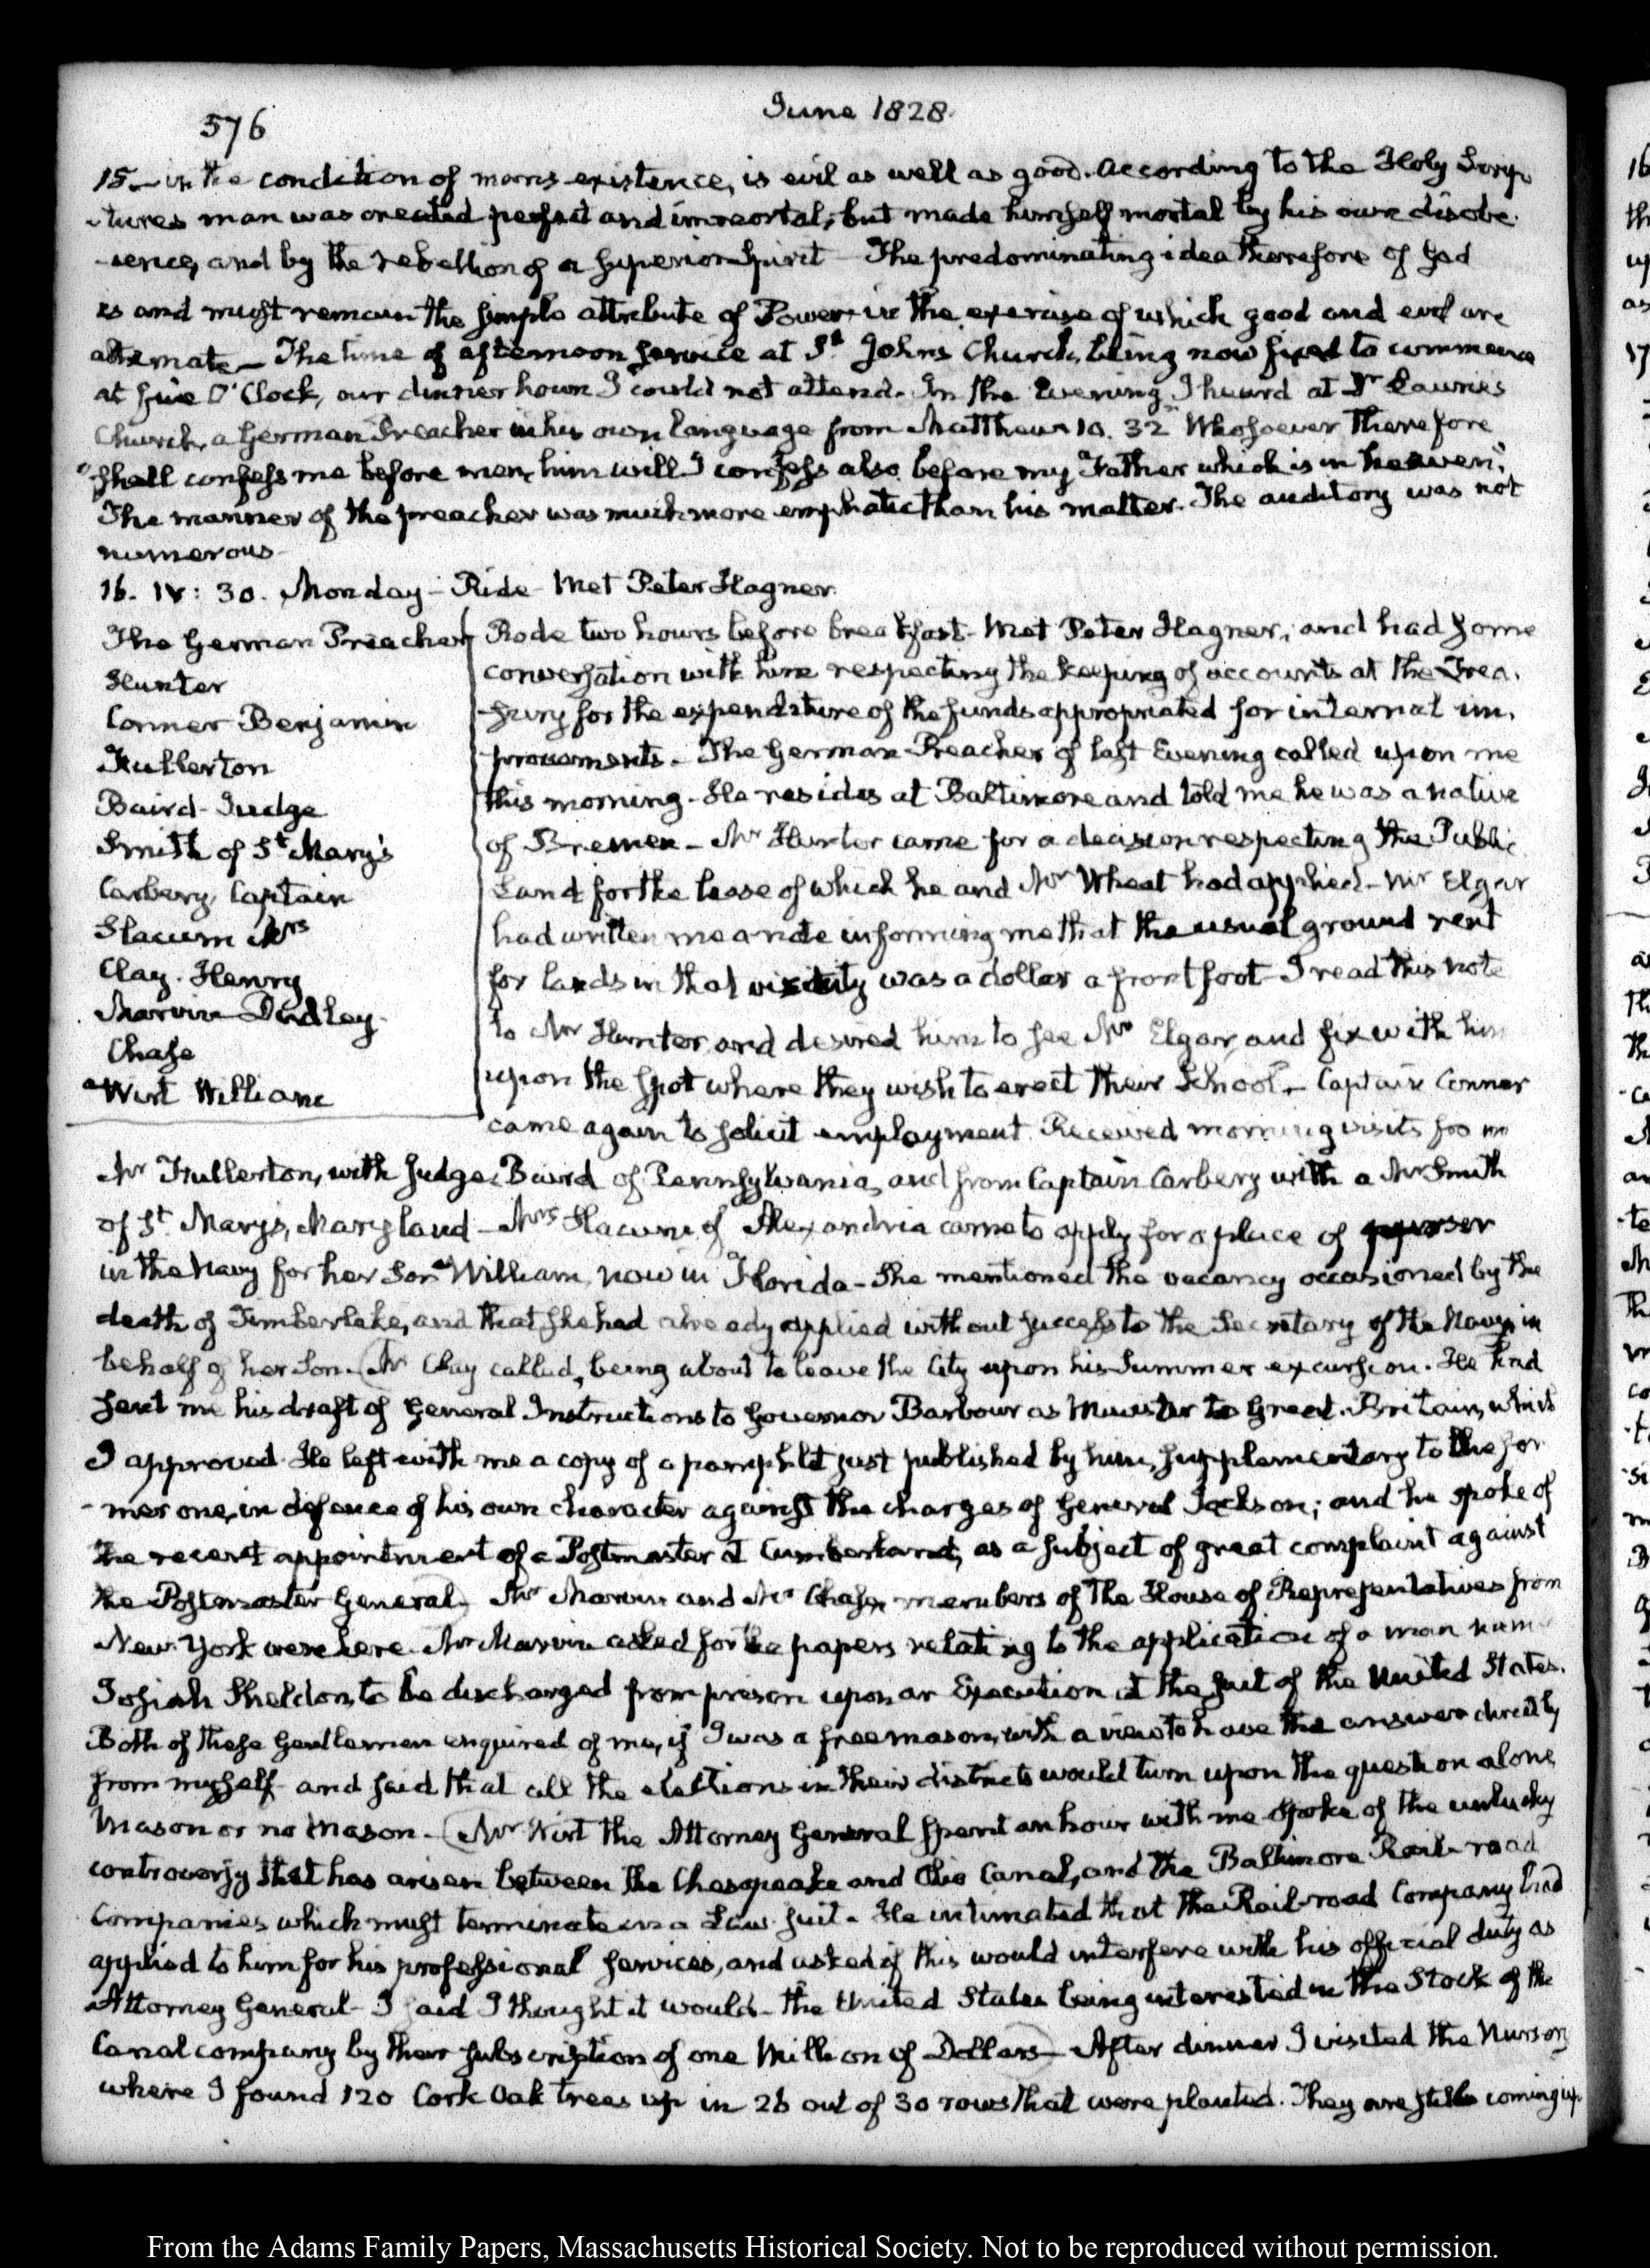 576
June 1828.
15.- in the condition of man's existence, is evil as well as good. According to the Holy Scrip-
-tures man was created perfect and immortal; but made himself mortal by his own disobe-
-ience, and by the rebellion of a superior Spirit - The predominating idea therefore of God
is and must remain the simple attribute of Power - in the exercise of which good and evil are
alternate - The time of afternoon service at St. Johns Church, being now fixed to commence
at five O'Clock, our dinner hour I could not attend. In the Evening I heard at Dr Lauries
Church, a German Preacher in his own language from Matthew 10. 32 "Whosoever therefore
"shall confess me before men, him will I confess also before my Father which is in heaven."
The manner of the preacher was much more emphatic than his matter. The auditory was not
numerous
16. IV: 30. Monday - Ride - Met Peter Hagner.
The German Preacher
Hunter
Conner Benjamin
Fullerton
Baird - Judge
Smith of St Mary's
Carbery, Captain
Slacum Mrs
Clay. Henry
Marvin Dudley
Chase
Wirt William
Rode two hours before breakfast - Met Peter Hagner, and had some
conversation with him respecting the keeping of accounts at the Trea-
-sury for the expenditure of the funds appropriated for internal im-
provements. - The German Preacher of last Evening called upon me
this morning - He resides at Baltimore and told me he was a native
of Bremen - Mr Hunter came for a decision respecting the Public
Land for the lease of which he and Mr Wheat had applied - Mr Elgar
had written me a note informing me that the usual ground rent
for lands in that vicinity was a dollar a front foot - I read this note
to Mr Hunter, and desired him to see Mr Elgar, and fix with him
upon the spot where they wish to erect their School. - Captain Conner
came again to solicit employment. Received morning visits from
Mr Fullerton, with Judge Baird of Pennsylvania, and from Captain Carbery with a Mr Smith
of St. Mary's, Maryland - Mrs Slacum of Alexandria came to apply for a place of purser
in the Navy for her Son William, now in Florida - She mentioned the vacancy occasioned by the
death of Timberlake, and that she had already applied without success to the Secretary of the Navy in
behalf of her Son. Mr Clay called, being about to leave the City upon his Summer excursion. He had
sent me his draft of General Instructions to Governor Barbour as Minister to Great-Britain, which
I approved. He left with me a copy of a pamphlet just published by him, supplementary to the for
-mer one, in defence of his own character against the charges of General Jackson; and he spoke of
the recent appointment of a Postmaster at Cumberland, as a subject of great complaint against
the Postmaster General. Mr Marvin and Mr Chase, members of the House of Representatives from
New-York were here. Mr Marvin asked for the papers relating to the application of a man nam
Josiah Sheldon, to be discharged from prison upon an Execution at the suit of the United States.
Both of these Gentlemen enquired of me, if I was a freemason, with a view to have the answer directly
from myself - and said that all the elections in their districts would turn upon the question alone
Mason or no Mason. - Mr Wirt the Attorney General spent an hour with me - spoke of the unlucky
controversy that has arisen between the Chesapeake and Ohio Canal, and the Baltimore Rail-road
Companies which must terminate in a Law-suit. He intimated that the Rail-road Company had
applied to him for his professional services, and asked if this would interfere with his official duty as
Attorney General - I said I thought it would - the United States being interested in the Stock of the
Canal company by their subscription of one Million of Dollars - After dinner I visited the Nursery
where I found 120 Cork Oak trees up in 26 out of 30 rows that were planted. They are still coming up.
From the Adams Family Papers, Massachusetts Historical Society. Not to be reproduced without permission.